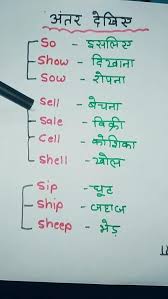 अंतर देखिए
So - इसलिए
Show - दिखाना
Sow - रोपना
Sell - बेचना
Sale - बिक्री
Cell - कोशिका
Shell - खोल
Sip - घूंट
Ship - जहाज
Sheep - भेड़